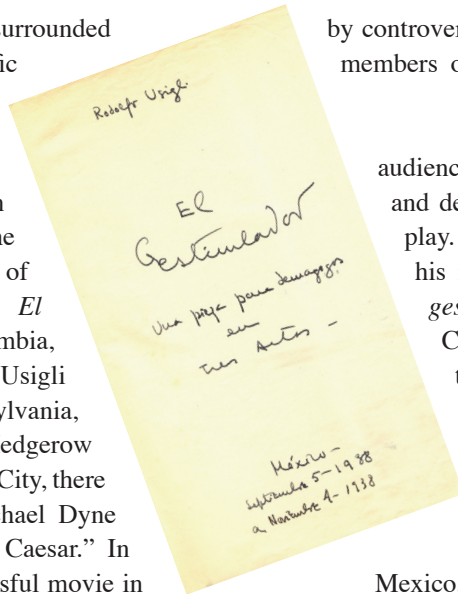 surrounded
fic
n
ne
of
El
mbia,
Usigli
ylvania,
edgerow
City, there
chael Dyne
Caesar.” In
sful movie in
Rodolfo Usigli
El
Gesticulador
Una pieza para demagogos
en
tres Actos –
México –
septiembre 5–1938
a Noviembre 4–1938
by controver
members o
audienc
and de
play.
his
ges
C
t
Mexico